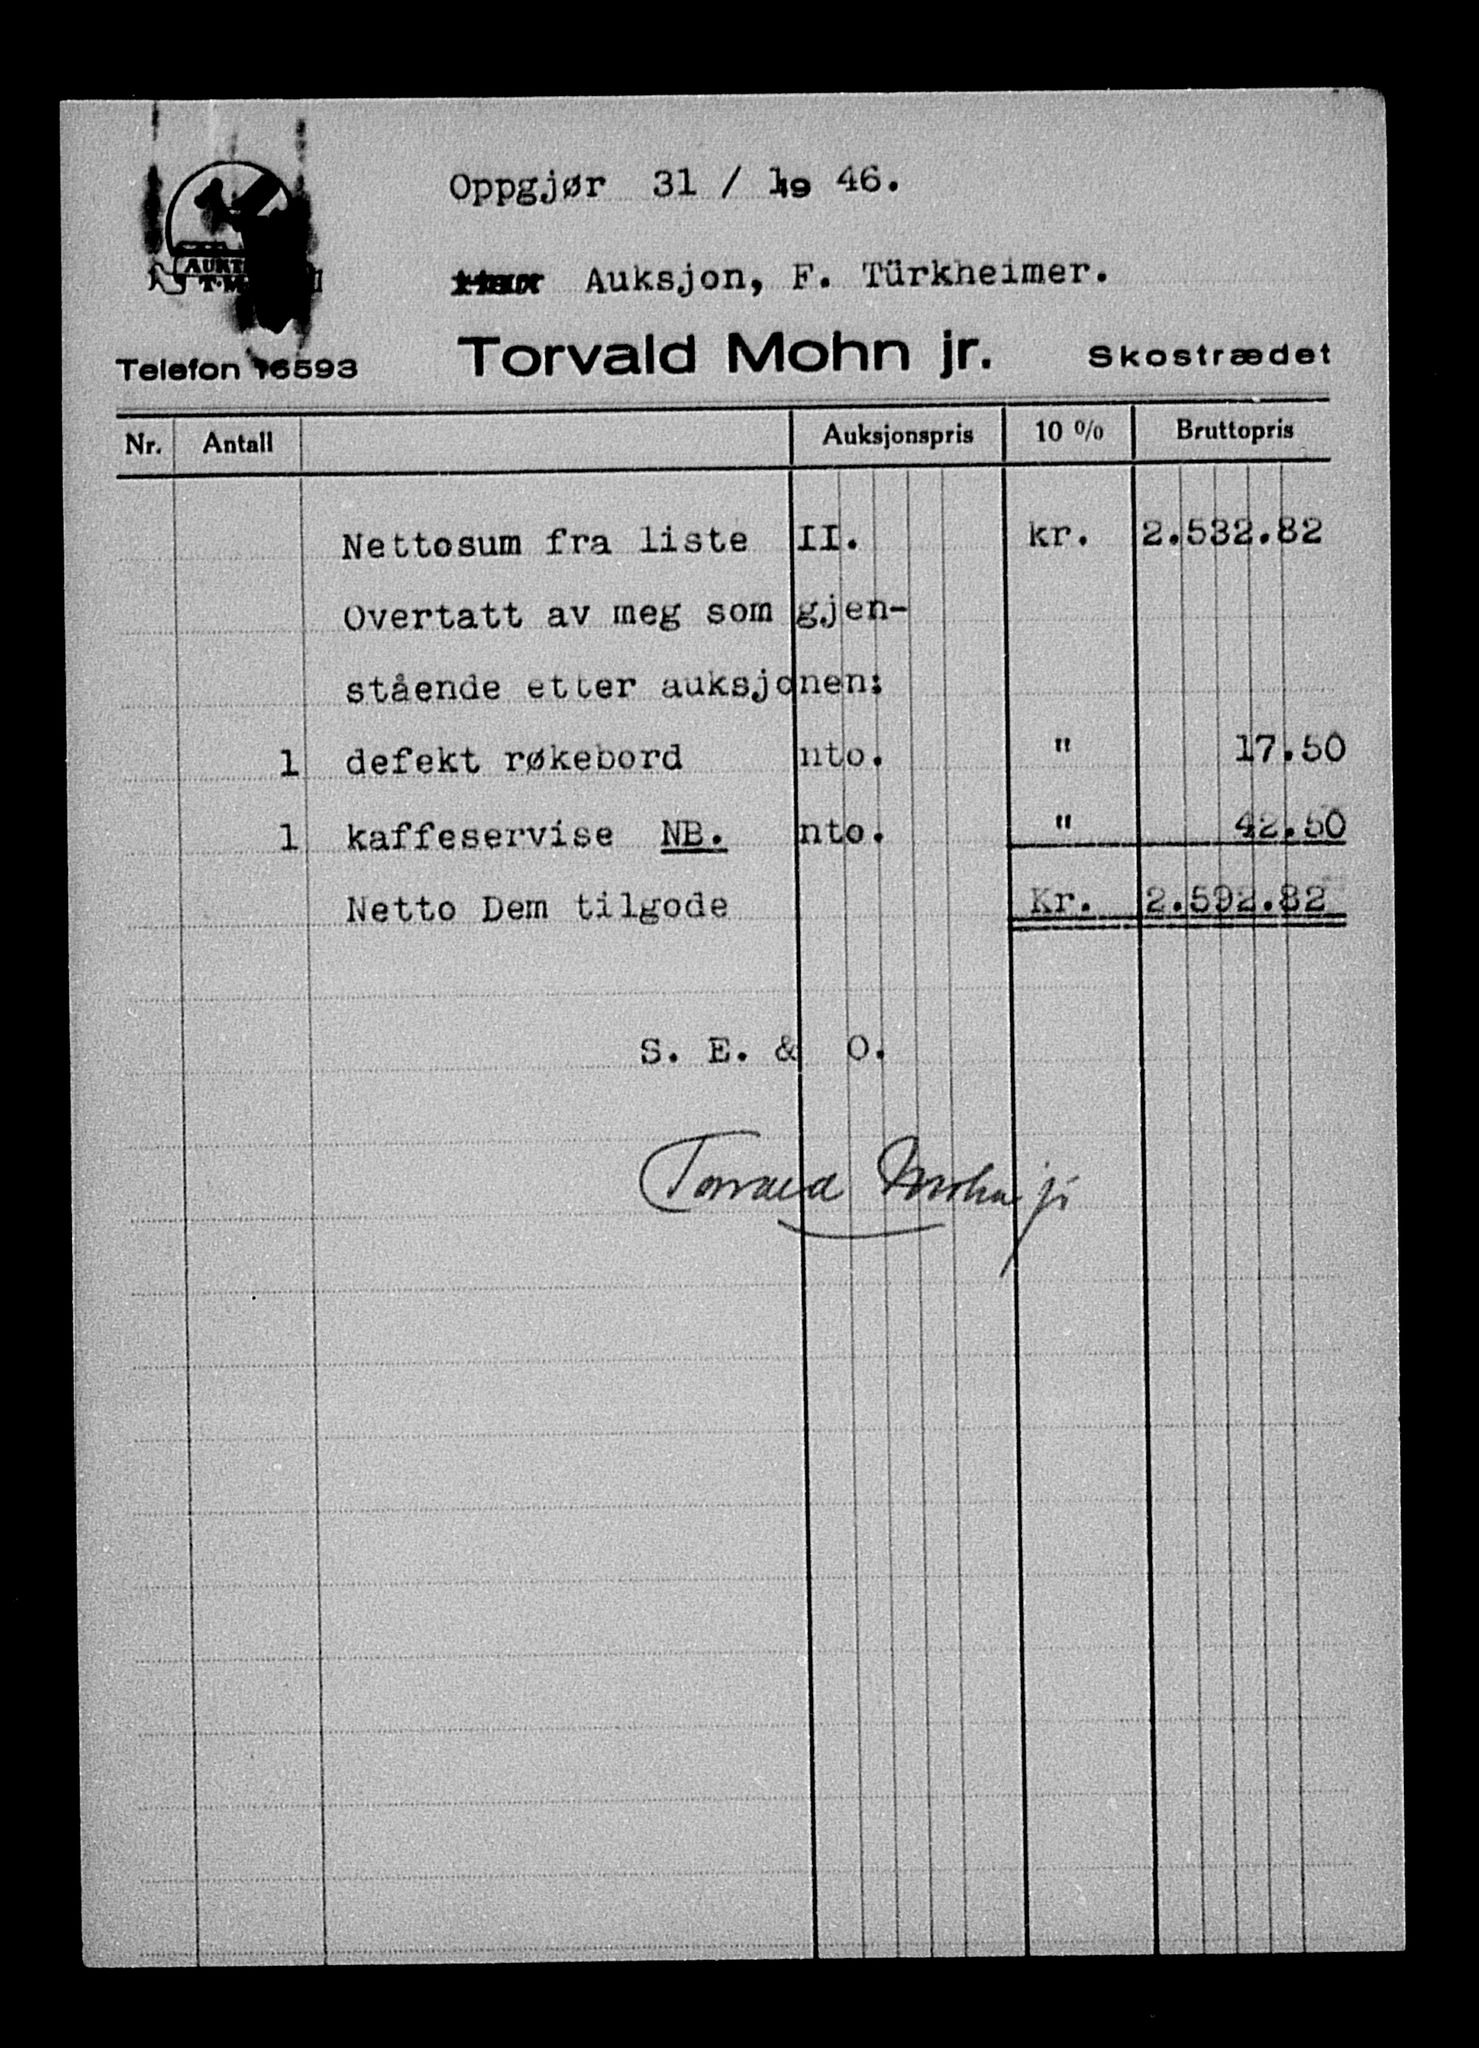 Oppgjør 31 / 19 46.
Auksjon, F. Türkheimer.
AUKT
T.M.
Telefon 16593 Torvald Mohn jr. Skostrædet
Nr. Antall Auksjonspris 10 % Bruttopris
Nettosum fra liste II. kr. 2.532.82
Overtatt av meg som gjen-
stående etter auksjonen:
1 defekt røkebord nto. " 17.50
1 kaffeservise NB. nto. " 42.50
Netto Dem tilgode Kr. 2.592.82
S. E. & O.
Torvald Mohn jr